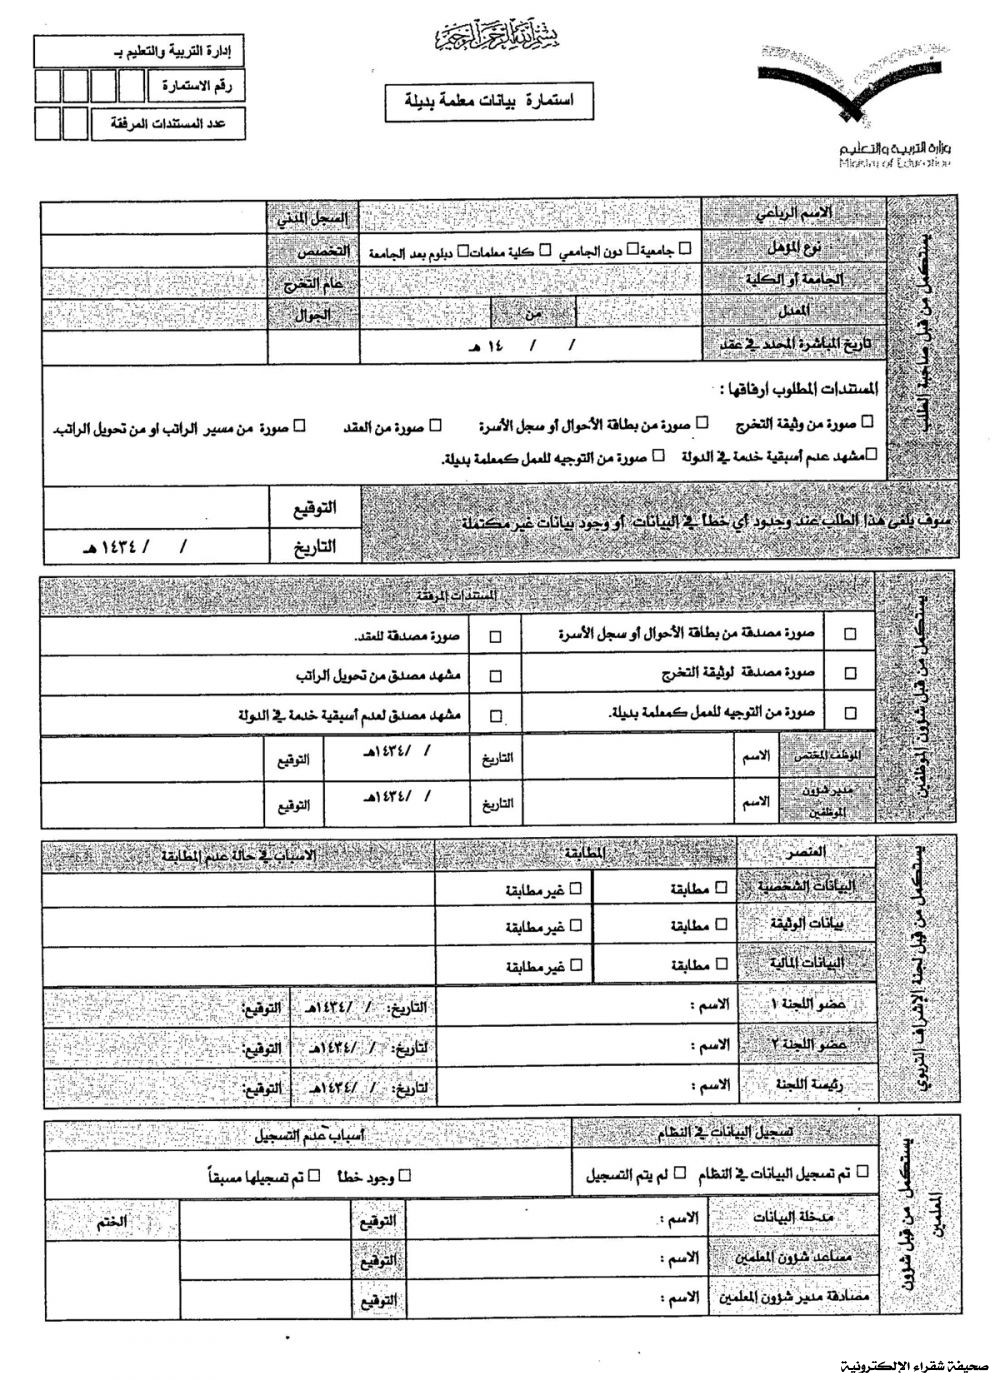 بسم الله الرحمن الرحيم
إدارة التربية والتعليم بـ
رقم الاستمارة
عدد المستندات المرفقة
استمارة بيانات معلمة بديلة
وزارة التربية والتعليم
Ministry of Education
يستكمل من قبل صاحبة الطلب
الاسم الرباعي
السجل المدني
نوع المؤهل
□ جامعية □ دون الجامعي □ كلية معلمات □ دبلوم بعد الجامعة
التخصص
الجامعة أو الكلية
عام التخرج
المعدل
من
الجوال
تاريخ المباشرة المحدد في عقد
/ / ١٤ هـ
المستندات المطلوب ارفاقها :
□ صورة من وثيقة التخرج □ صورة من بطاقة الأحوال أو سجل الأسرة □ صورة من العقد □ صورة من مسير الراتب او من تحويل الراتب.
□ مشهد عدم أسبقية خدمة في الدولة □ صورة من التوجيه للعمل كمعلمة بديلة.
سوف يلغى هذا الطلب عند وجود أي خطأ في البيانات أو وجود بيانات غير مكتملة
التوقيع
التاريخ
/ / ١٤٣٤ هـ
يستكمل من قبل شؤون الموظفين
المستندات المرفقة
□ صورة مصدقة من بطاقة الأحوال أو سجل الأسرة □ صورة مصدقة للعقد.
□ صورة مصدقة لوثيقة التخرج □ مشهد مصدق من تحويل الراتب
□ صورة من التوجيه للعمل كمعلمة بديلة. □ مشهد مصدق لعدم أسبقية خدمة في الدولة
الموظف المختص الاسم التاريخ / /١٤٣٤هـ التوقيع
مدير شؤون الموظفين الاسم التاريخ / /١٤٣٤هـ التوقيع
يستكمل من قبل لجنة الإشراف التربوي
العنصر المطابقة الاسباب في حالة عدم المطابقة
البيانات الشخصية □ مطابقة □ غير مطابقة
بيانات الوثيقة □ مطابقة □ غير مطابقة
البيانات المالية □ مطابقة □ غير مطابقة
عضو اللجنة ١ الاسم : التاريخ: / /١٤٣٤هـ التوقيع:
عضو اللجنة ٢ الاسم : لتاريخ: / /١٤٣٤هـ التوقيع:
رئيسة اللجنة الاسم : لتاريخ: / /١٤٣٤هـ التوقيع:
يستكمل من قبل شؤون المعلمين
تسجيل البيانات في النظام أسباب عدم التسجيل
□ تم تسجيل البيانات في النظام □ لم يتم التسجيل □ وجود خطأ □ تم تسجيلها مسبقاً
مدخلة البيانات الاسم : التوقيع الختم
مساعد شؤون المعلمين الاسم : التوقيع
مصادقة مدير شؤون المعلمين الاسم : التوقيع
صحيفة شقراء الإلكترونية